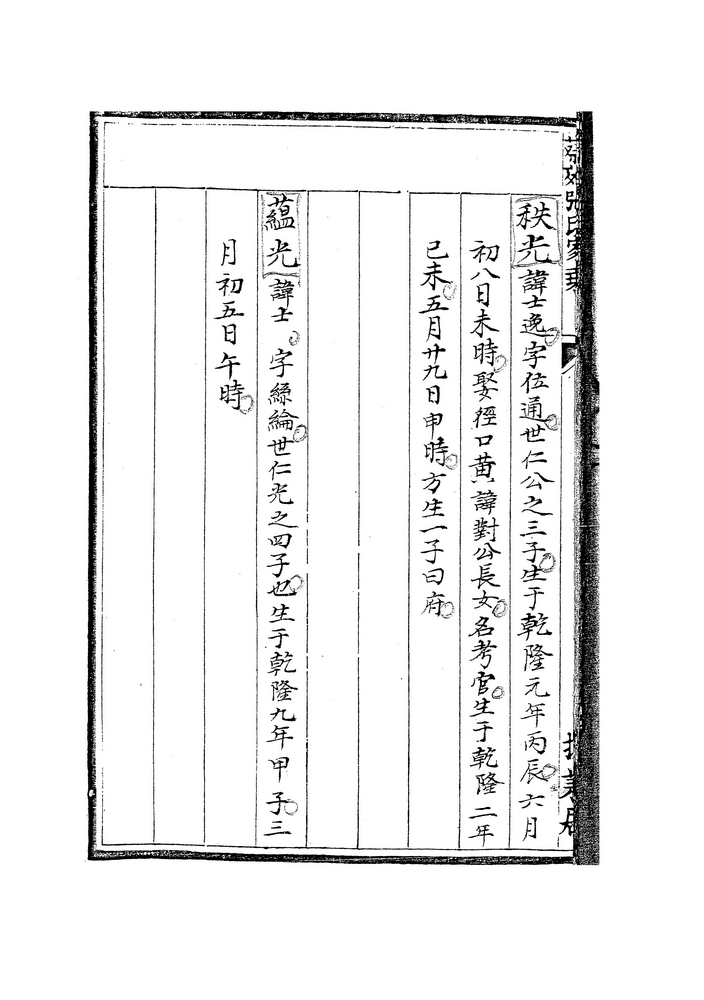 張氏家乘
秩光諱士逸字位通世仁公之三子生于乾隆元年丙辰六月
初八日未時娶徑口黄八諱對公長女名考官生于乾隆二年
已未五月廿九日申時方生一子曰府
蘊光諱士 字絲綸世仁光之四子也生于乾隆九年甲子三
月初五日午時